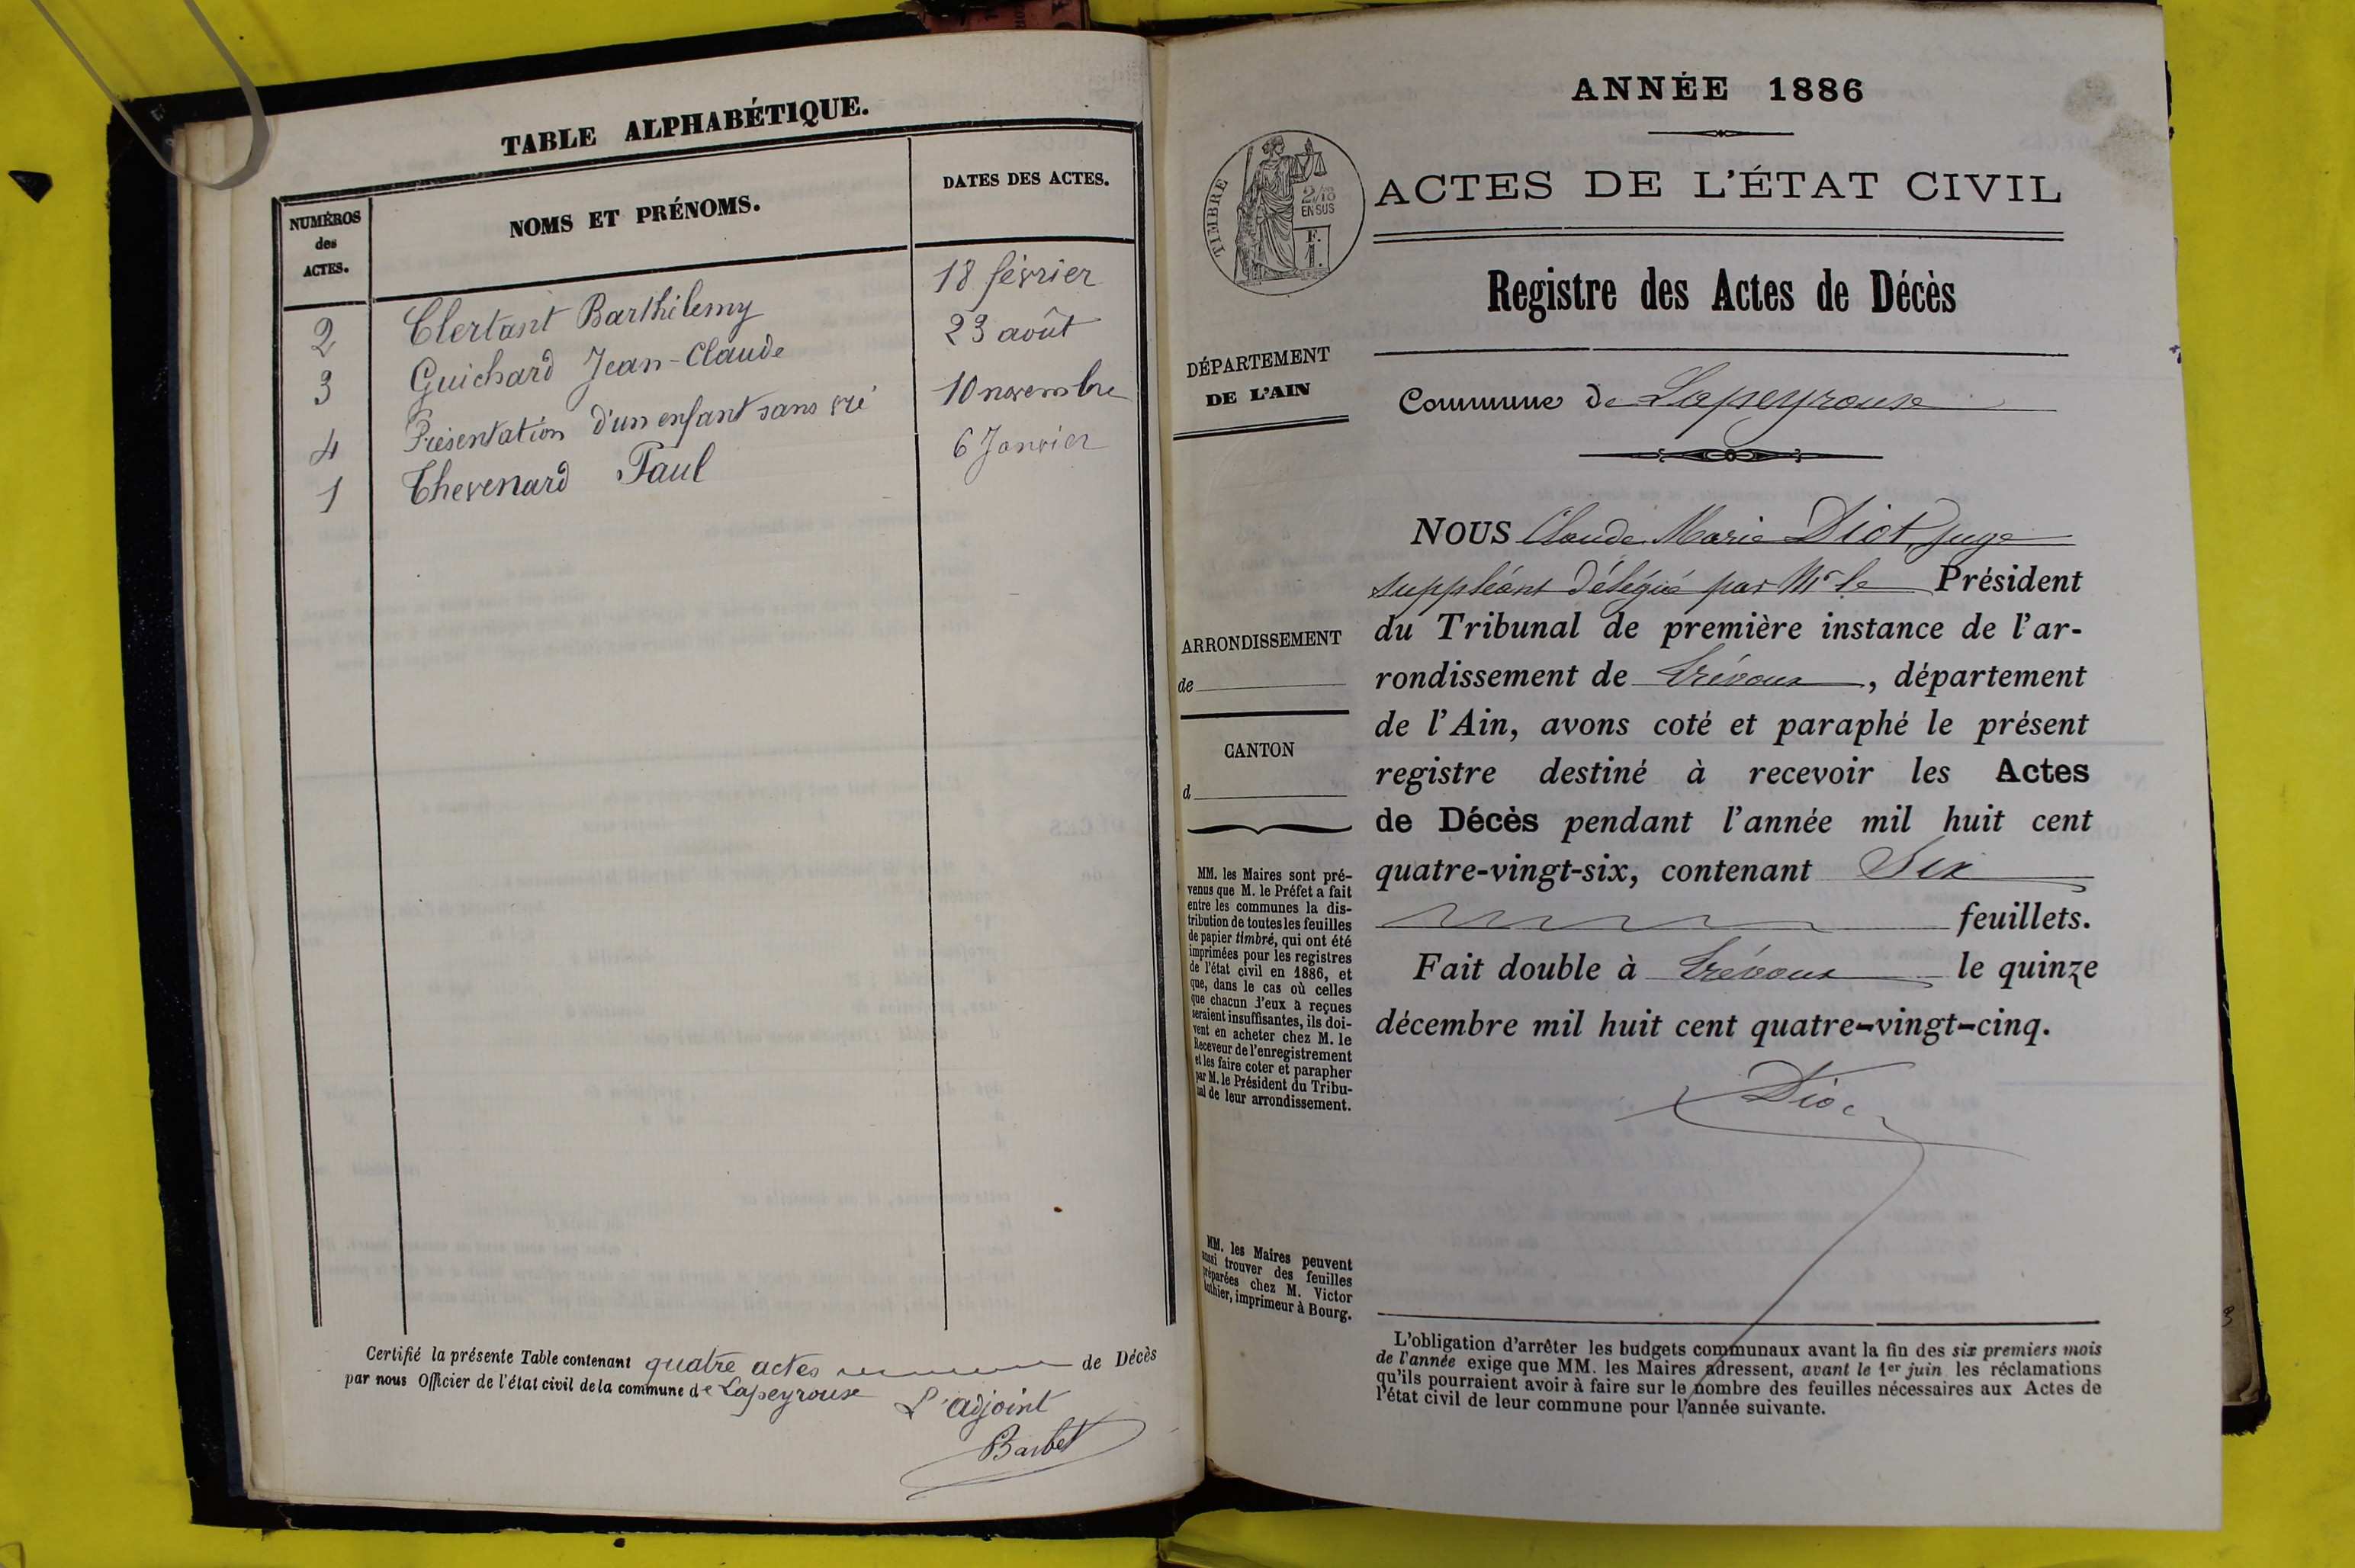 TABLE ALPHABÉTIQUE.
NUMÉROS
des
ACTES.
NOMS ET PRÉNOMS.
DATES DES ACTES.
2 Clertant Barthilemy 18 février
3 Guichard Jean-Claude 23 août
4 Présentation d'un enfant sans vie 10 novembre
1 Thevenard Paul 6 Janvier
Certifié la présente Table contenant quatre actes de Décès
par nous Officier de l'état civil de la commune de Lapeyrouse
L'adjoint
Barbet
ANNÉE 1886
ACTES DE L'ÉTAT CIVIL
TIMBRE
2/10
EN SUS
F.
1.
Registre des Actes de Décès
DÉPARTEMENT
DE L'AIN
Commune de Lapeyrouse
ARRONDISSEMENT
de
CANTON
d
MM. les Maires sont pré-
venus que M. le Préfet a fait
entre les communes la dis-
tribution de toutes les feuilles
de papier timbré, qui ont été
imprimées pour les registres
de l'état civil en 1886, et
que, dans le cas où celles
que chacun d'eux a reçues
seraient insuffisantes, ils doi-
vent en acheter chez M. le
Receveur de l'enregistrement
et les faire coter et parapher
par M. le Président du Tribu-
nal de leur arrondissement.
MM. les Maires peuvent
aussi trouver des feuilles
préparées chez M. Victor
imprimeur à Bourg.
NOUS Claude Marie Diot, Juge
suppléant délégué par Mr le Président
du Tribunal de première instance de l'ar-
rondissement de Trévoux, département
de l'Ain, avons coté et paraphé le présent
registre destiné à recevoir les Actes
de Décès pendant l'année mil huit cent
quatre-vingt-six, contenant Six
feuillets.
Fait double à Trévoux le quinze
décembre mil huit cent quatre-vingt-cinq.
Diot
L'obligation d'arrêter les budgets communaux avant la fin des six premiers mois
de l'année exige que MM. les Maires adressent, avant le 1er juin les réclamations
qu'ils pourraient avoir à faire sur le nombre des feuilles nécessaires aux Actes de
l'état civil de leur commune pour l'année suivante.